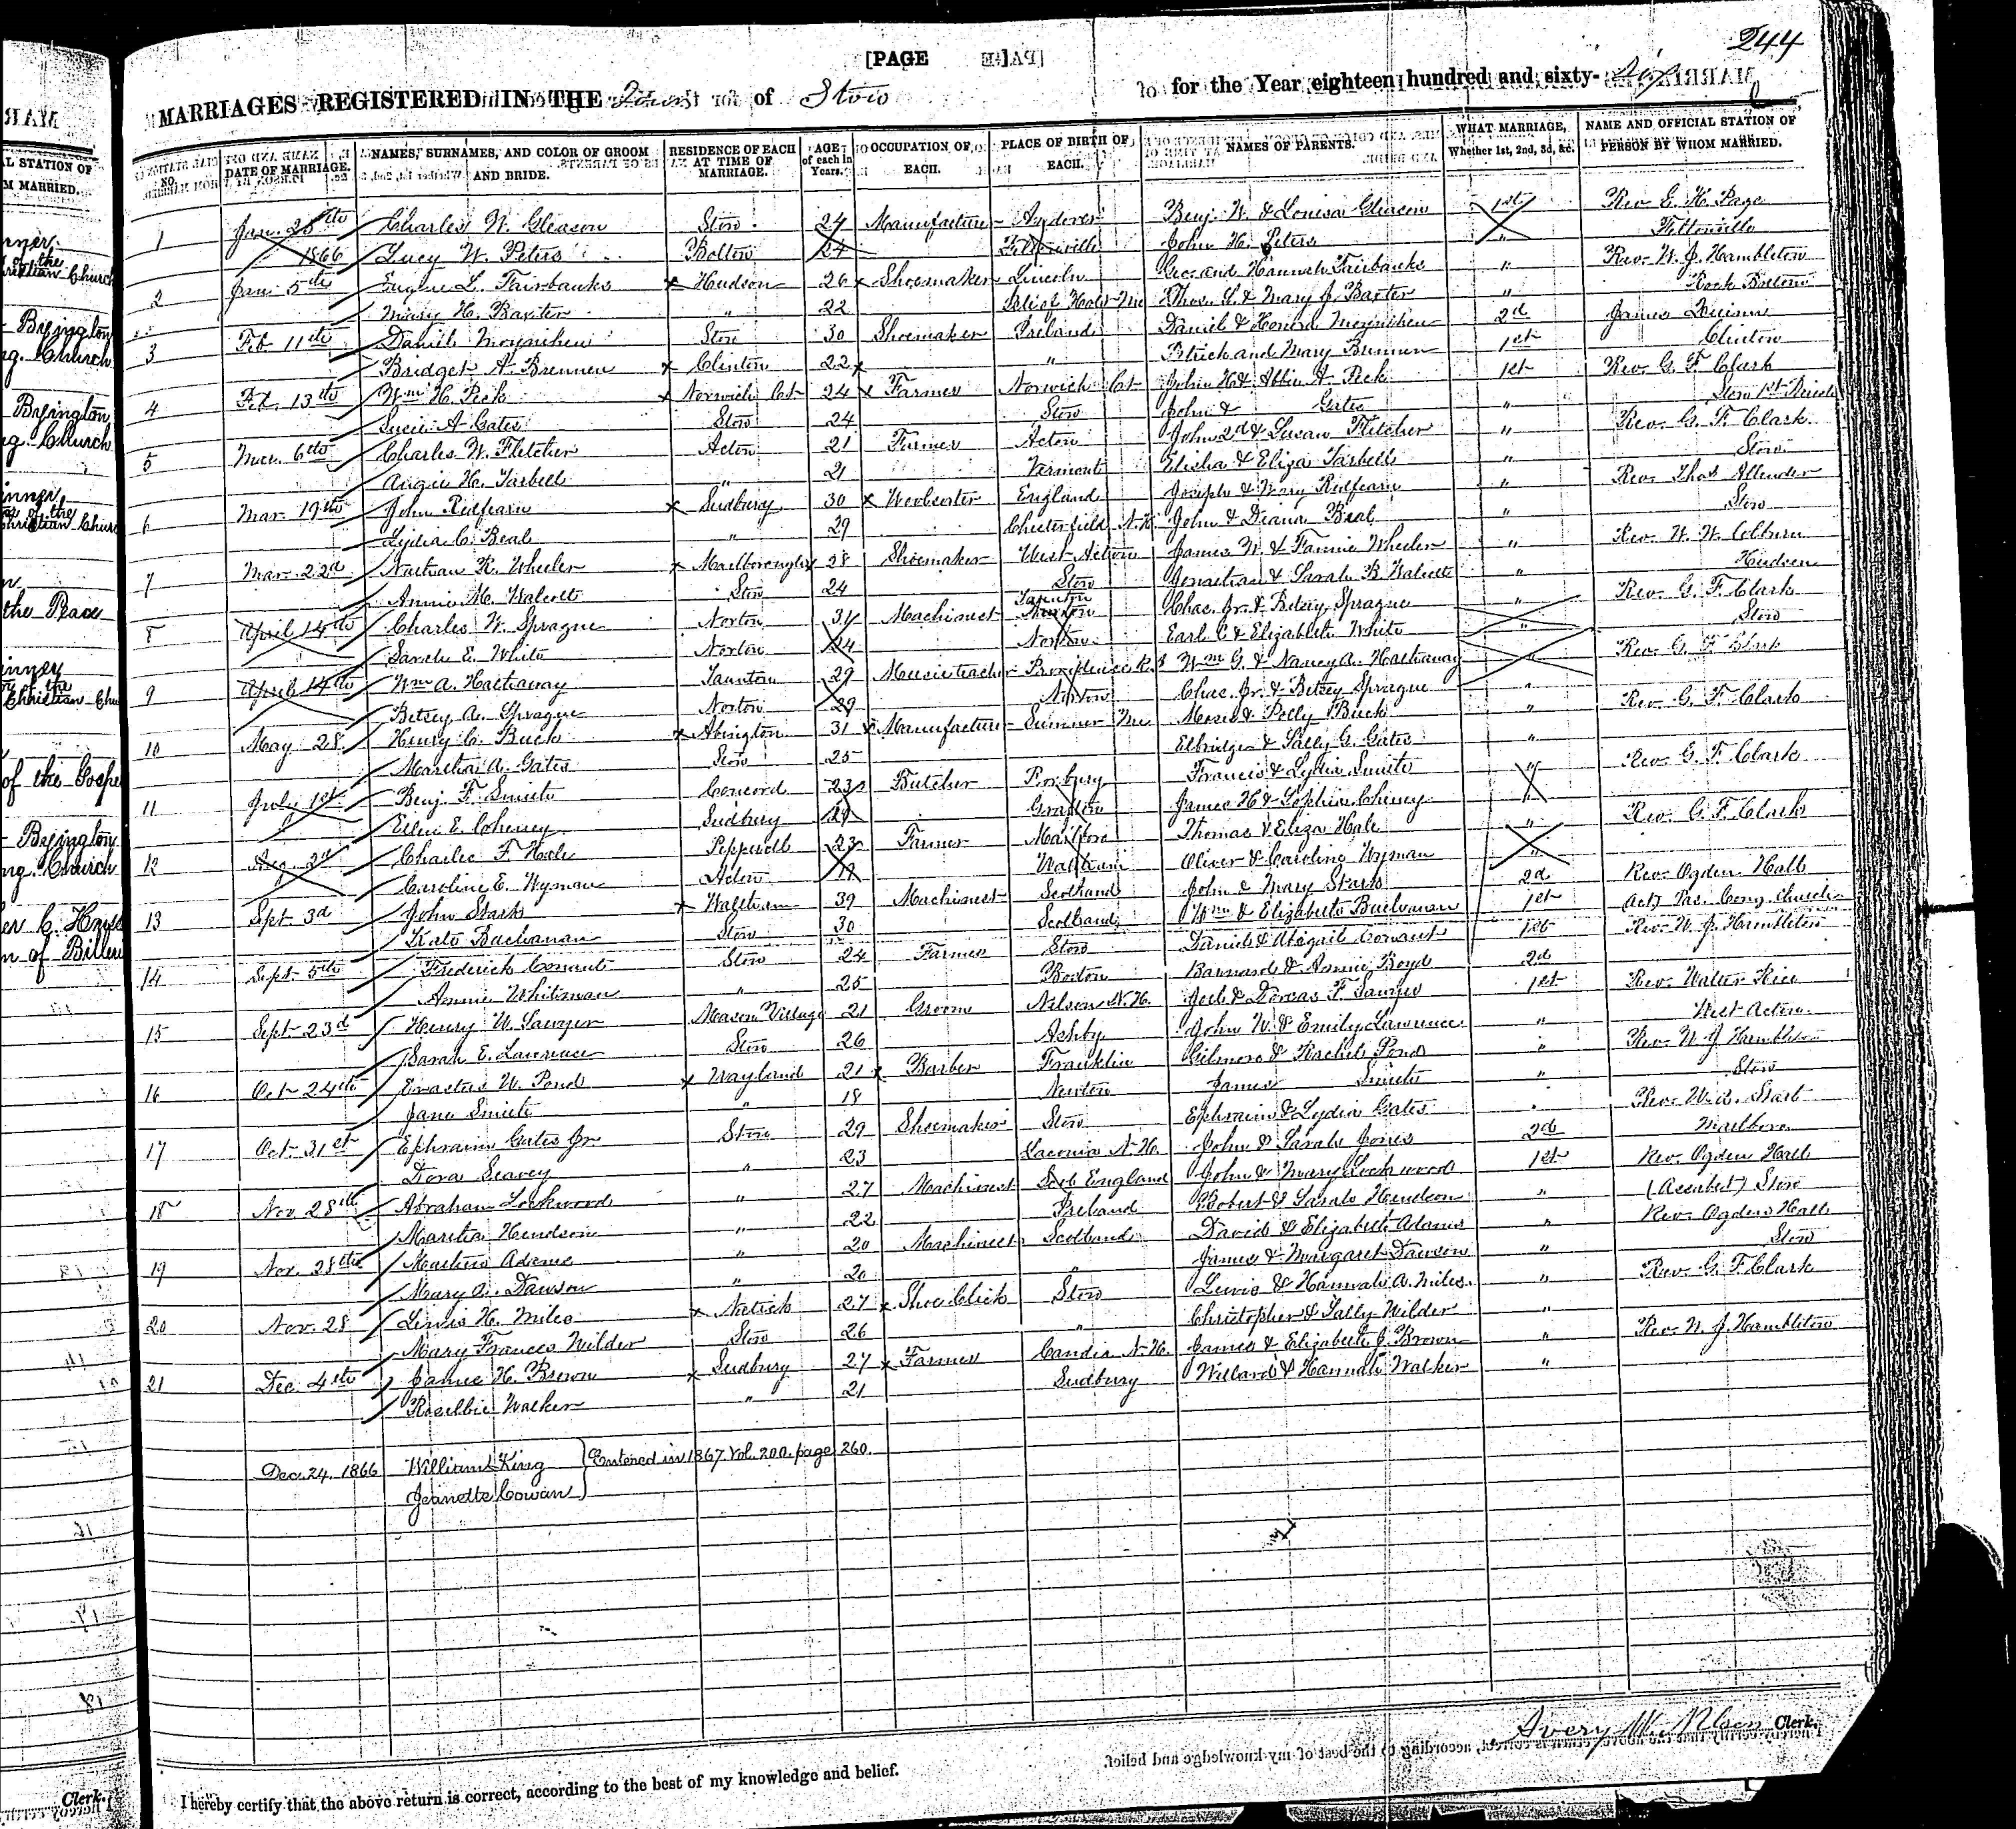 244
[PAGE
MARRIAGES REGISTERED IN THE Town of Stow for the Year eighteen hundred and sixty-six
NO. DATE OF MARRIAGE. NAMES, SURNAMES, AND COLOR OF GROOM AND BRIDE. RESIDENCE OF EACH AT TIME OF MARRIAGE. AGE of each in Years. OCCUPATION OF EACH. PLACE OF BIRTH OF EACH. NAMES OF PARENTS. WHAT MARRIAGE, Whether 1st, 2nd, 3d, &c. NAME AND OFFICIAL STATION OF PERSON BY WHOM MARRIED.
1 Jan. 28th Charles W. Gleason Stow 24 Manufacturer Andover Benj. W. & Louisa Gleason 1st Rev E. H. Page
1866 Lucy W. Peters Bolton 24 Feltonville John H. Peters " Feltonville
2 Jan. 5th Eugene L. Fairbanks Hudson 26 Shoemaker Lincoln Geo. and Hannah Fairbanks " Rev. W. J. Hambleton
Mary H. Baxter " 22 Thos. G. & Mary J. Baxter " Rock Bottom
3 Feb 11th Daniel Moynihen Stow 30 Shoemaker Ireland Daniel & Honora Moynihen 2d James Quinn
Bridget A. Brennen Clinton 22 " Patrick and Mary Brennen 1st Clinton
4 Feb. 13th Wm H. Peck Norwich Ct 24 Farmer Norwich Ct John H & Abbie A. Peck 1st Rev. G. F. Clark
Lucie A Gates Stow 24 Stow John & Gates " Stow 1st Parish
5 Mar. 6th Charles W. Fletcher Acton 21 Farmer Acton John 2d & Susan Fletcher " Rev. G. F. Clark
Angie H. Tarbell " 21 Vermont Elisha & Eliza Tarbell " Stow
6 Mar. 19th John Redfearn Sudbury 30 Woolsorter England Joseph & Mary Redfearn " Rev. Thos Allender
Lydia C. Beal " 29 Chesterfield N.H. John & Diana Beal " Stow
7 Mar. 22d Nathan R. Wheeler Marlborough 28 Shoemaker West Acton James W. & Fannie Wheeler " Rev. W. W. Colburn
Annie M. Walcott Stow 24 Stow Jonathan & Sarah B. Walcott " Hudson
8 April 14th Charles W. Sprague Norton 31 Machinist Taunton Chas. Jr. & Betsey Sprague " Rev. G. F. Clark
Sarah E. White Norton 24 Norton Earl C & Elizabeth White " Stow
9 April 14th Wm A. Hathaway Taunton 29 Music teacher Providence R.I Wm G. & Nancy A. Hathaway " Rev. G. F Clark
Betsey A. Sprague Norton 29 Norton Chas. Jr. & Betsey Sprague "
10 May 28 Henry C. Buck Abington 31 Manufacturer Sumner Me Moses & Polly Buck " Rev. G. F. Clark
Martha A. Gates Stow 25 Elbridge & Sally G. Gates "
11 July 1st Benj. F. Smith Concord 23 Butcher Roxbury Francis & Lydia Smith " Rev. G. F. Clark
Ellen E. Cheney Sudbury Grafton James H & Sophia Cheney "
12 Aug. 3d Charles F. Hale Pepperell 23 Farmer Thomas & Eliza Hale " Rev. G. F. Clark
Caroline E. Wyman Acton 19 Waltham Oliver & Caroline Wyman "
13 Sept 3d John Stark Waltham 39 Machinist Scotland John & Mary Stark 2d Rev. Ogden Hall
Kate Buchanan Stow 30 Scotland Wm & Elizabeth Buchanan 1st Act'g Pas. Cong. Church
14 Sept 5th Frederick Conant Stow 24 Farmer Stow Daniel & Abigail Conant 1st Rev. W. J. Hambleton
Annie Whitman " 25 Boston Barnard & Annie Boyd 2d
15 Sept 23d Henry W. Sawyer Mason Village 21 Groom Nelson N.H. Joel & Dorcas F. Sawyer 1st Rev. Walter Rice
Sarah E. Lawrence Stow 26 Ashby John W. & Emily Lawrence " West Acton
16 Oct 24th Erastus W. Pond Wayland 21 Barber Franklin Gilmore & Rachel Pond " Rev. W. J Hambleton
Jane Smith " 18 Newton James Smith " Stow
17 Oct 31st Ephraim Gates Jr Stow 29 Shoemaker Stow Ephraim & Lydia Gates " Rev. W. A. Start
Dora Seavey " 23 Laconia N.H. John & Sarah Jones 2d Marlboro
18 Nov. 28th Abraham Lockwood " 27 Machinist England John & Mary Lockwood 1st Rev. Ogden Hall
Martha Hendson " 22 Ireland Robert & Sarah Hendson " Stow
19 Nov. 28th Mathew Adams " 20 Machinist Scotland David & Elizabeth Adams " Rev. Ogden Hall
Mary A. Dawson " 20 " James & Margaret Dawson " Stow
20 Nov. 28 Lewis H. Miles Natick 27 Shoe Stow Lewis & Hannah A. Miles. " Rev. G. F. Clark
Mary Frances Wilder Stow 26 " Christopher & Sally Wilder "
21 Dec. 4th James H. Brown Sudbury 27 Farmer Candia N.H. James & Elizabeth J. Brown " Rev. W. J. Hambleton
Rosellie Walker " 21 Sudbury Willard & Hannah Walker "
Dec. 24. 1866 William King } Entered in 1867. Vol. 200. page 260.
Jeanette Cowan
Clerk.
I hereby certify that the above return is correct, according to the best of my knowledge and belief.